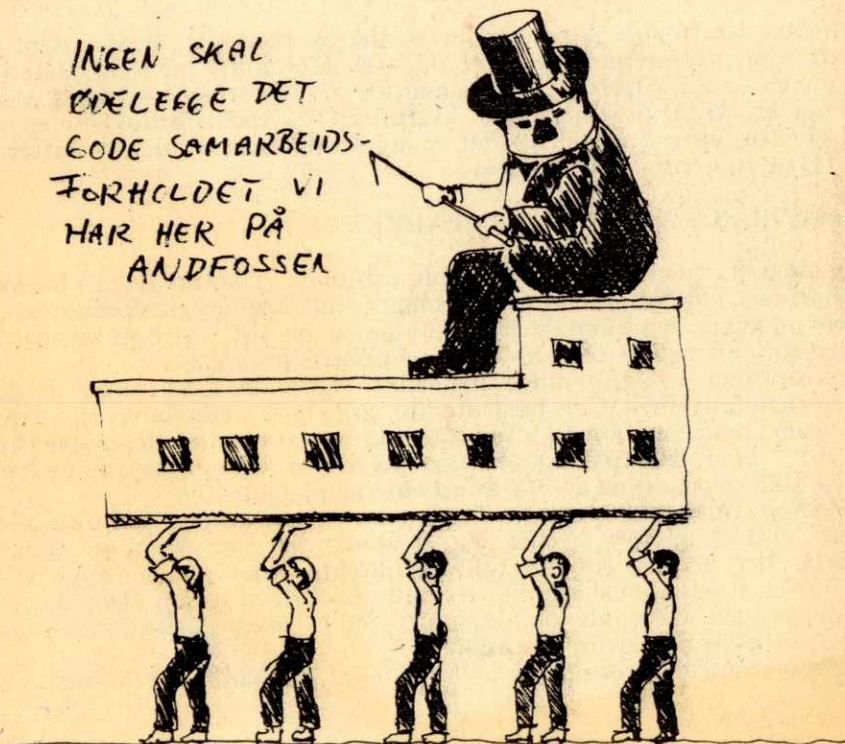 INGEN SKAL
ØDELEGGE DET
GODE SAMARBEIDS-
FORHOLDET VI
HAR HER PÅ
ANDFOSSEN